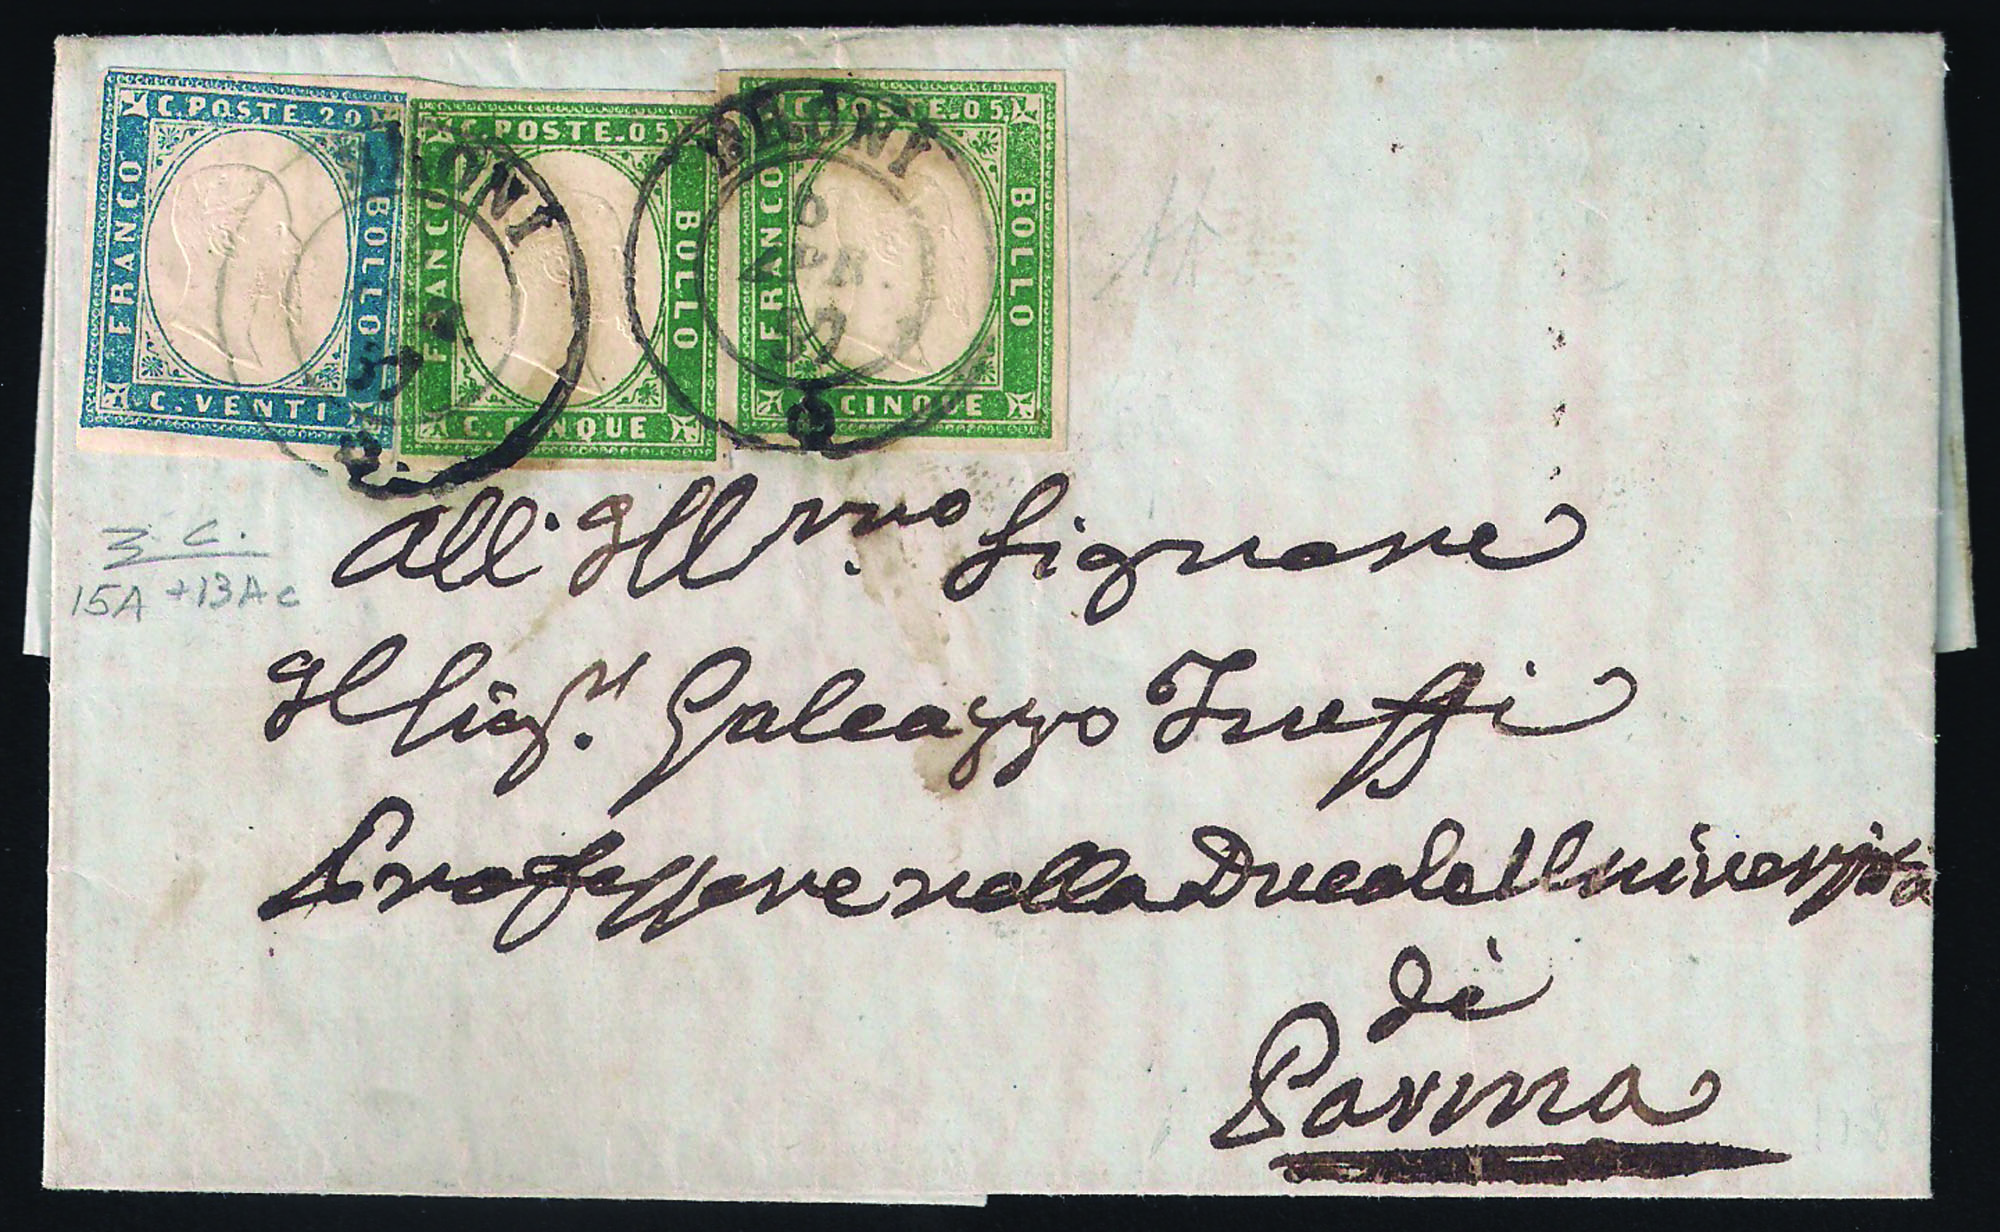 C. POSTE. 20
FRANCO
BOLLO
C. VENTI
C. POSTE. 05
FRANCO
BOLLO
C. CINQUE
C. POSTE. 05.
FRANCO
BOLLO
CINQUE
BRONI
57
BRONI
APR
57
3 C.
15A + 13A c
All. Ill.mo Signore
Il Sigr. Galeazzo Truffi
Professore nella Ducale Università
di
Parma